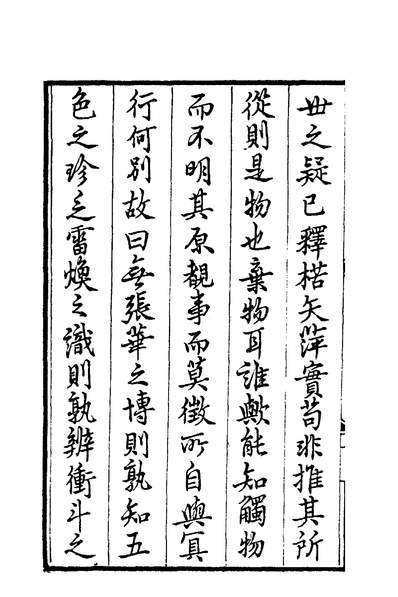 世之疑已釋楛矢萍實苟非推其所
從則是物也棄物耳誰歟能知觸物
而不明其原覩事而莫徵所自與冥
行何別故曰無張華之博則孰知五
色之珍乏雷煥之識則孰辨衝斗之